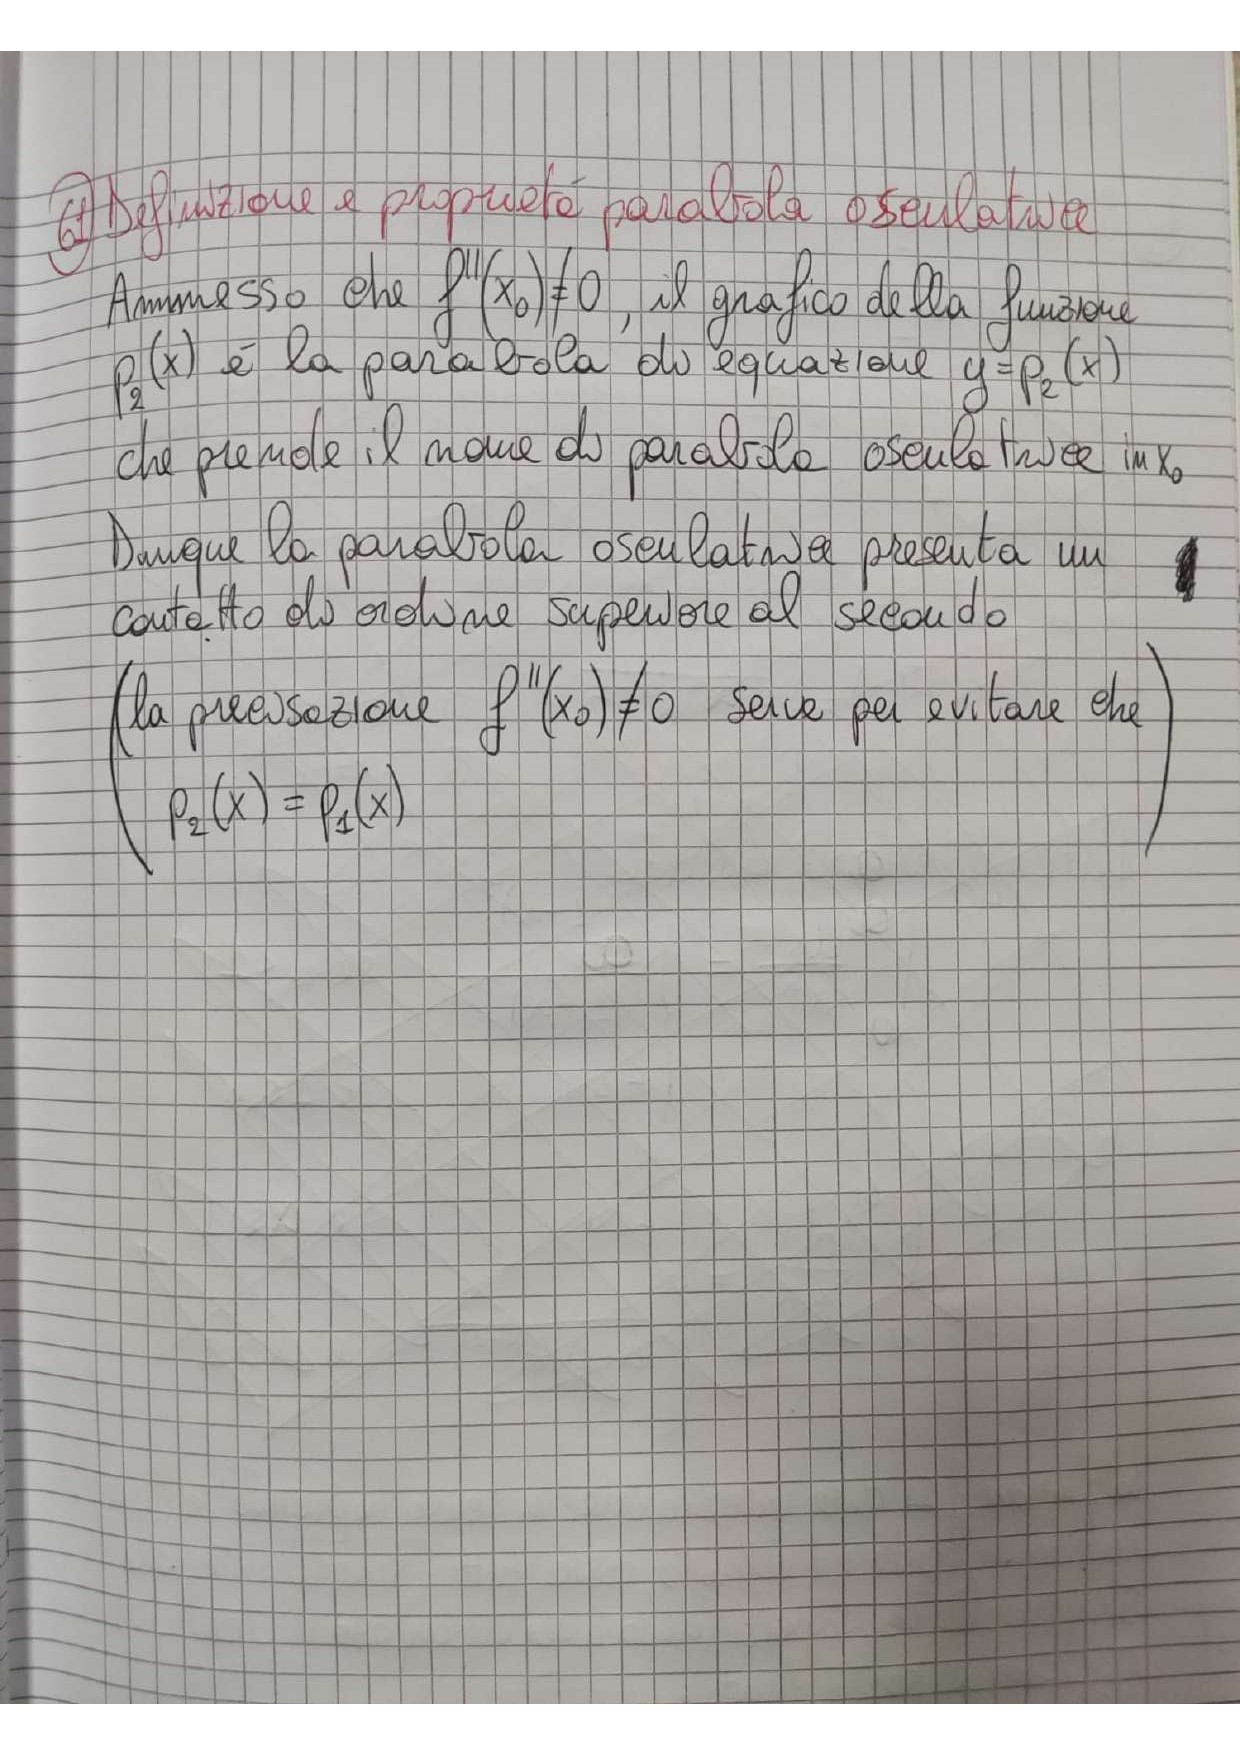 61 Definizione e proprietà parabola osculatrice
Ammesso che f''(x₀)≠0, il grafico della funzione
p₂(x) è la parabola di equazione y=p₂(x)
che prende il nome di parabola osculatrice in x₀
Dunque la parabola osculatrice presenta un
contatto di ordine superiore al secondo
(la precisazione f''(x₀)≠0 serve per evitare che
p₂(x) = p₁(x))